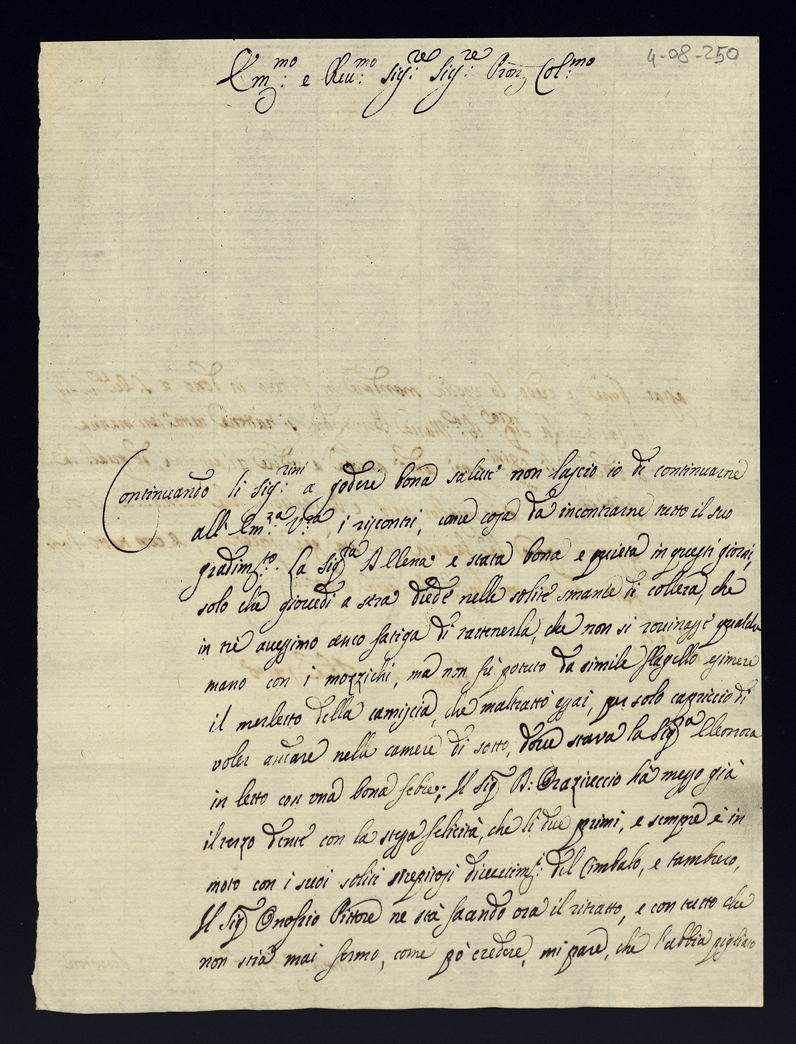 4-08-250
Em:mo e Reu:mo Sig:re Sig:re Pron Col:mo
Continuando li Sig:rini a godere bona salute non lascio io di continuarne
all' Em:za V:ra i riscontri, come cosa da incontrarne tutto il suo
gradim:to. La Sig:ra Allena e stata bona e quieta in questi giorni,
solo che giovedi a sera diede nelle solite smanie di collera, che
in tré auessimo fatiga di rattenerla, che non si rouinasse qualche
mano con i mozzichi, ma non fù potuto da simile flagello esimere
il merletto della camiscia, che maltrattò assai, per solo capriccio di
voler andare nella camere di sotto, doue staua la Sig:ra Eleonora
in letto con una bona febre; Il Sig: D: Oraziuccio hà messo già
il terzo dente con la stessa felicità, che li due primi, e sempre è in
moto con i suoi soliti strepitosi diuertim:ti del Cimbalo, e tamburo,
Il Sig: Onofrio Pittore ne stà facendo ora il ritratto, e con tutto che
non stia mai fermo, come pò credere, mi pare, che l'abbia pigliato